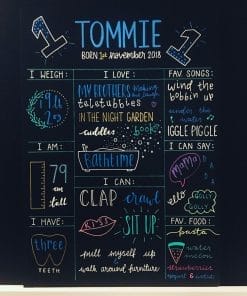 1 TOMMIE 1
BORN 1st NOVEMBER 2018
I WEIGH:
I LOVE:
MY BROTHERS making
teletubbies
IN THE NIGHT GARDEN
cuddles books
Bathtime
FAV. SONGS:
wind the
bobbin up
under the
water
IGGLE PIGGLE
I AM:
79
cm
tall
I CAN:
CLAP crawl
KISS SIT UP
pull myself up
walk around furniture
I CAN SAY:
mama
DADA
GOLLY
GOLLY
I HAVE:
three
TEETH
FAV. FOOD:
pasta
water
melon
strawberries
yogurt &